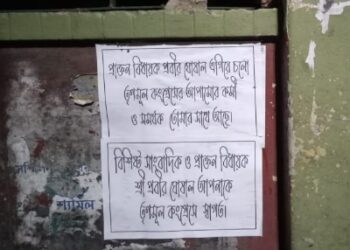 প্রাক্তন বিধায়ক প্রবীর ঘোষাল এগিয়ে চলো
তৃণমূল কংগ্রেসের আপামোর কর্মী
ও সমর্থক তোমার সাথে আছে।
বিশিষ্ট সাংবাদিক ও প্রাক্তন বিধায়ক
শ্রী প্রবীর ঘোষাল আপনাকে
তৃণমূল কংগ্রেসে স্বাগত।